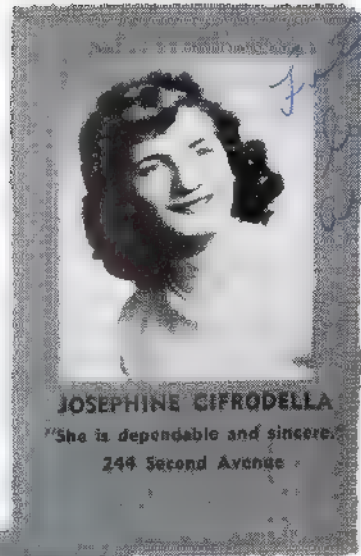 JOSEPHINE CIFRODELLA
"She is dependable and sincere."
244 Second Avenue